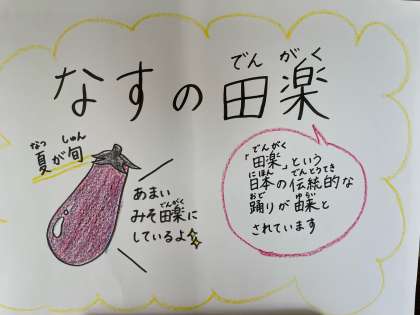 なすの田楽
でんがく
夏が旬
なつ しゅん
あまい
みそ田楽に
でんがく
しているよ
「田楽」という
でんがく
日本の伝統的な
にほん でんとうてき
踊りが由来と
おど ゆらい
されています